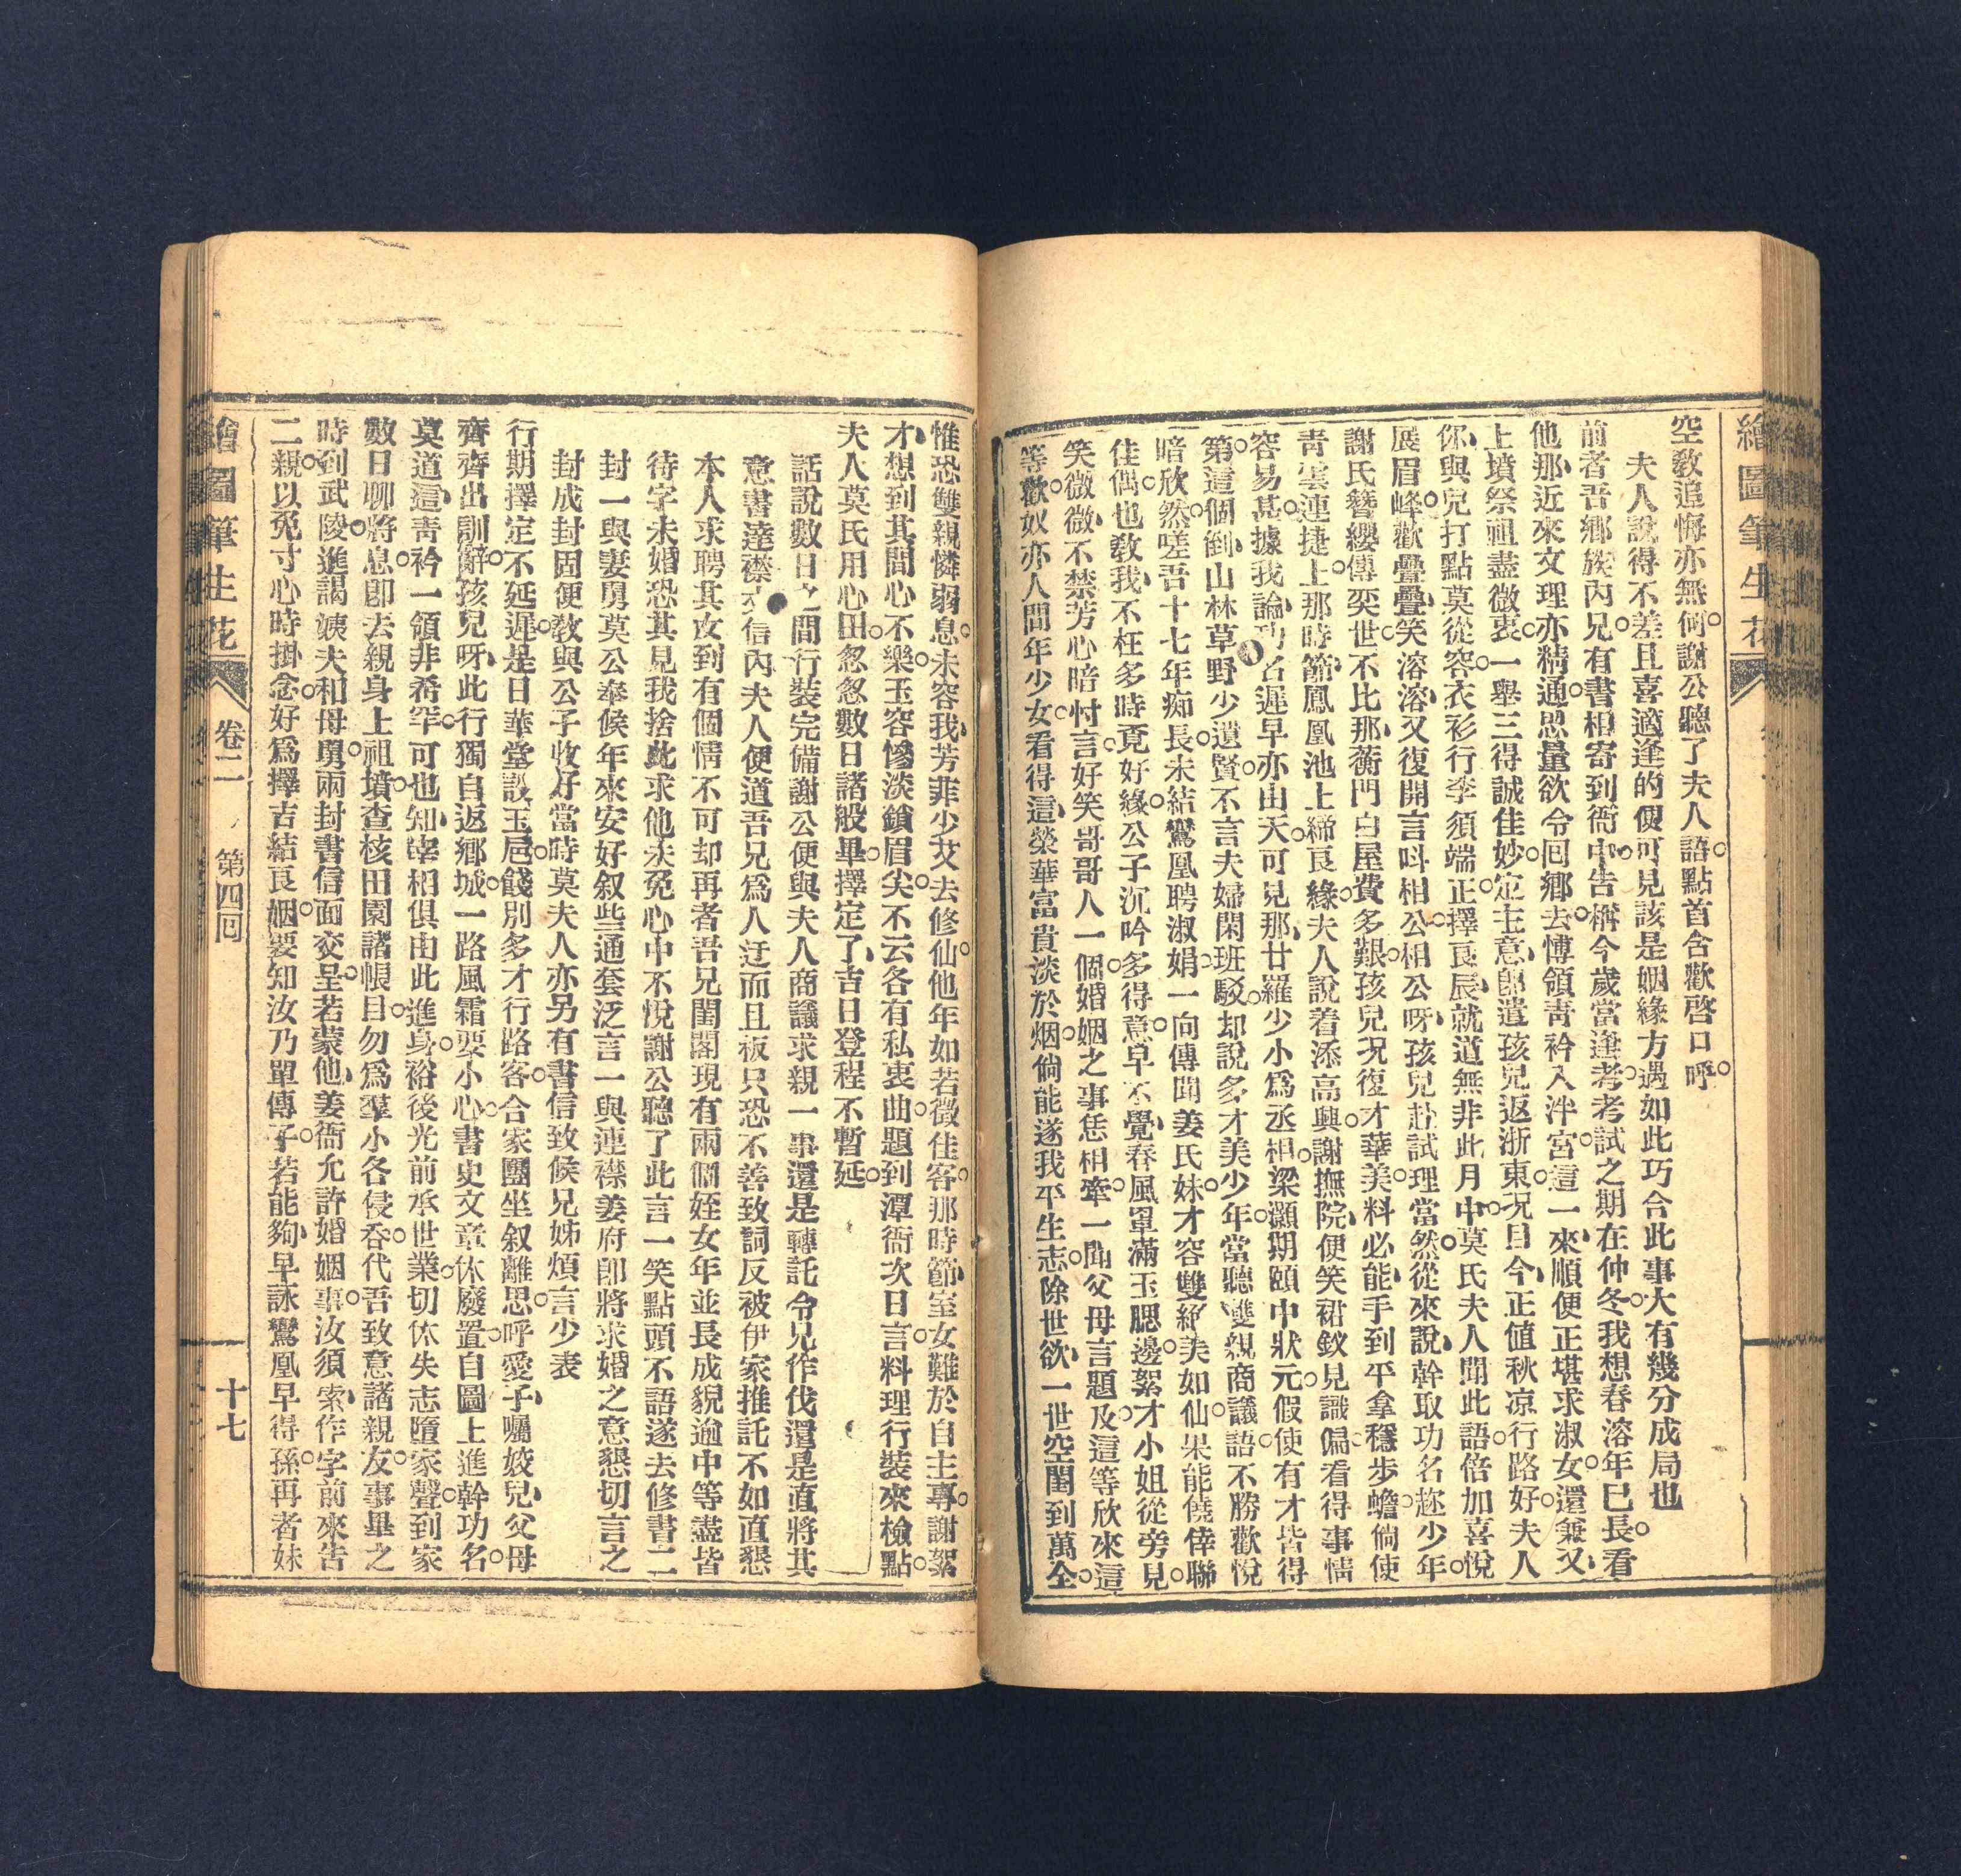 繪圖筆生花
空教追悔亦無何。謝公聽了夫人語。點首含歡啓口呼。
夫人說得不差且喜適逢的便可見該是姻緣方遇如此巧合此事大有幾分成局也
前者吾鄉族內兄。有書相寄到衙中。告稱今歲當逢考。考試之期在仲冬。我想春溶年已長。看
他那、近來文理亦精通。思量欲令回鄉去。博領青衿入泮宮。這一來、順便正堪求淑女。還兼又、
上墳祭祖盡微衷。一舉三得誠佳妙。定主意、卽遣孩兒返浙東。況目今、正值秋凉行路好。夫人
你、與兒打點莫從容。衣衫行李須端正。擇良辰、就道無非此月中。莫氏夫人聞此語。倍加喜悅
展眉峰。歡疊疊、笑溶溶、又復開言呌相公。相公呀、孩兒赴試理當然。從來說、幹取功名趂少年。
謝氏簪纓傳奕世。不比那、蘅門白屋費多艱。孩兒况復才華美。料必能、手到平拿穩步蟾。倘使
靑雲連捷上。那時節、鳳凰池上締良緣。夫人說着添高興。謝撫院、便笑裙釵見識偏。看得事情
容易甚。據我論、功名遲早亦由天。可見那、甘羅少小爲丞相。梁灝期頤中狀元。假使有才皆得
第。這個倒、山林草野少遺賢。不言夫婦閑班駁。却說多才美少年。當聽雙親商議語。不勝歡悅
暗欣然。嗟吾十七年痴長。未結鸞凰聘淑娟。一向傳聞姜氏妹。才容雙絕美如仙。果能僥倖聯
佳偶。也教我、不枉多時覓好緣。公子沉吟多得意。早不覺、春風罩滿玉腮邊。絮才小姐從旁見。
笑微微、不禁芳心暗忖言。好笑哥哥人一個。婚姻之事恁相牽。一聞父母言題及。這等欣來這
等歡。奴亦人間年少女。看得這、榮華富貴淡於烟。倘能遂我平生志。除世欲、一世空閨到萬全。
惟恐雙親憐弱息。未容我、芳菲少艾去修仙。他年如若徵佳客。那時節、室女難於自主專。謝絮
才、想到其間心不樂。玉容慘淡鎖眉尖。不云各有私衷曲。題到潭衙次日言。料理行裝來檢點。
夫人莫氏用心田。忽忽數日諸般畢。擇定了、吉日登程不暫延。
話說數日之間行裝完備謝公便與夫人商議求親一事還是轉託令兄作伐還是直將其
意書達襟丈信內夫人便道吾兄爲人迂而且板只恐不善致詞反被伊家推託不如直懇
本人求聘其女到有個情不可却再者吾兄閨閣現有兩個姪女年並長成貌遒中等盡皆
待字未婚恐其見我捨此求他未免心中不悅謝公聽了此言一笑點頭不語遂去修書二
封一與妻舅莫公奉候年來安好叙些通套泛言一與連襟姜府卽將求婚之意懇切言之
封成封固便教與公子收好當時莫夫人亦另有書信致候兄姊煩言少表
行期擇定不延遲。是日華堂設玉巵。餞別多才行路客。合家團坐叙離思。呼愛子、囑姣兒、父母
齊齊出訓辭。孩兒呀、此行獨自返鄉城。一路風霜要小心。書史文章休廢置。自圖上進幹功名。
莫道這、靑衿一領非希罕。可也知、宰相俱由此進身。裕後光前承世業。切休失志墮家聲。到家
數日聊將息。卽去親身上祖墳。查核田園諸帳目。勿爲羣小各侵吞。代吾致意諸親友。事畢之
時到武陵。進謁姨夫和母舅。兩封書信面交呈。若蒙他、姜衙允許婚姻事。汝須索、作字前來告
二親。以免寸心時掛念。好爲擇吉結良姻。要知汝乃單傳子。若能夠、早詠鸞凰早得孫。再者妹
繪圖筆生花 卷二 第四回 十七